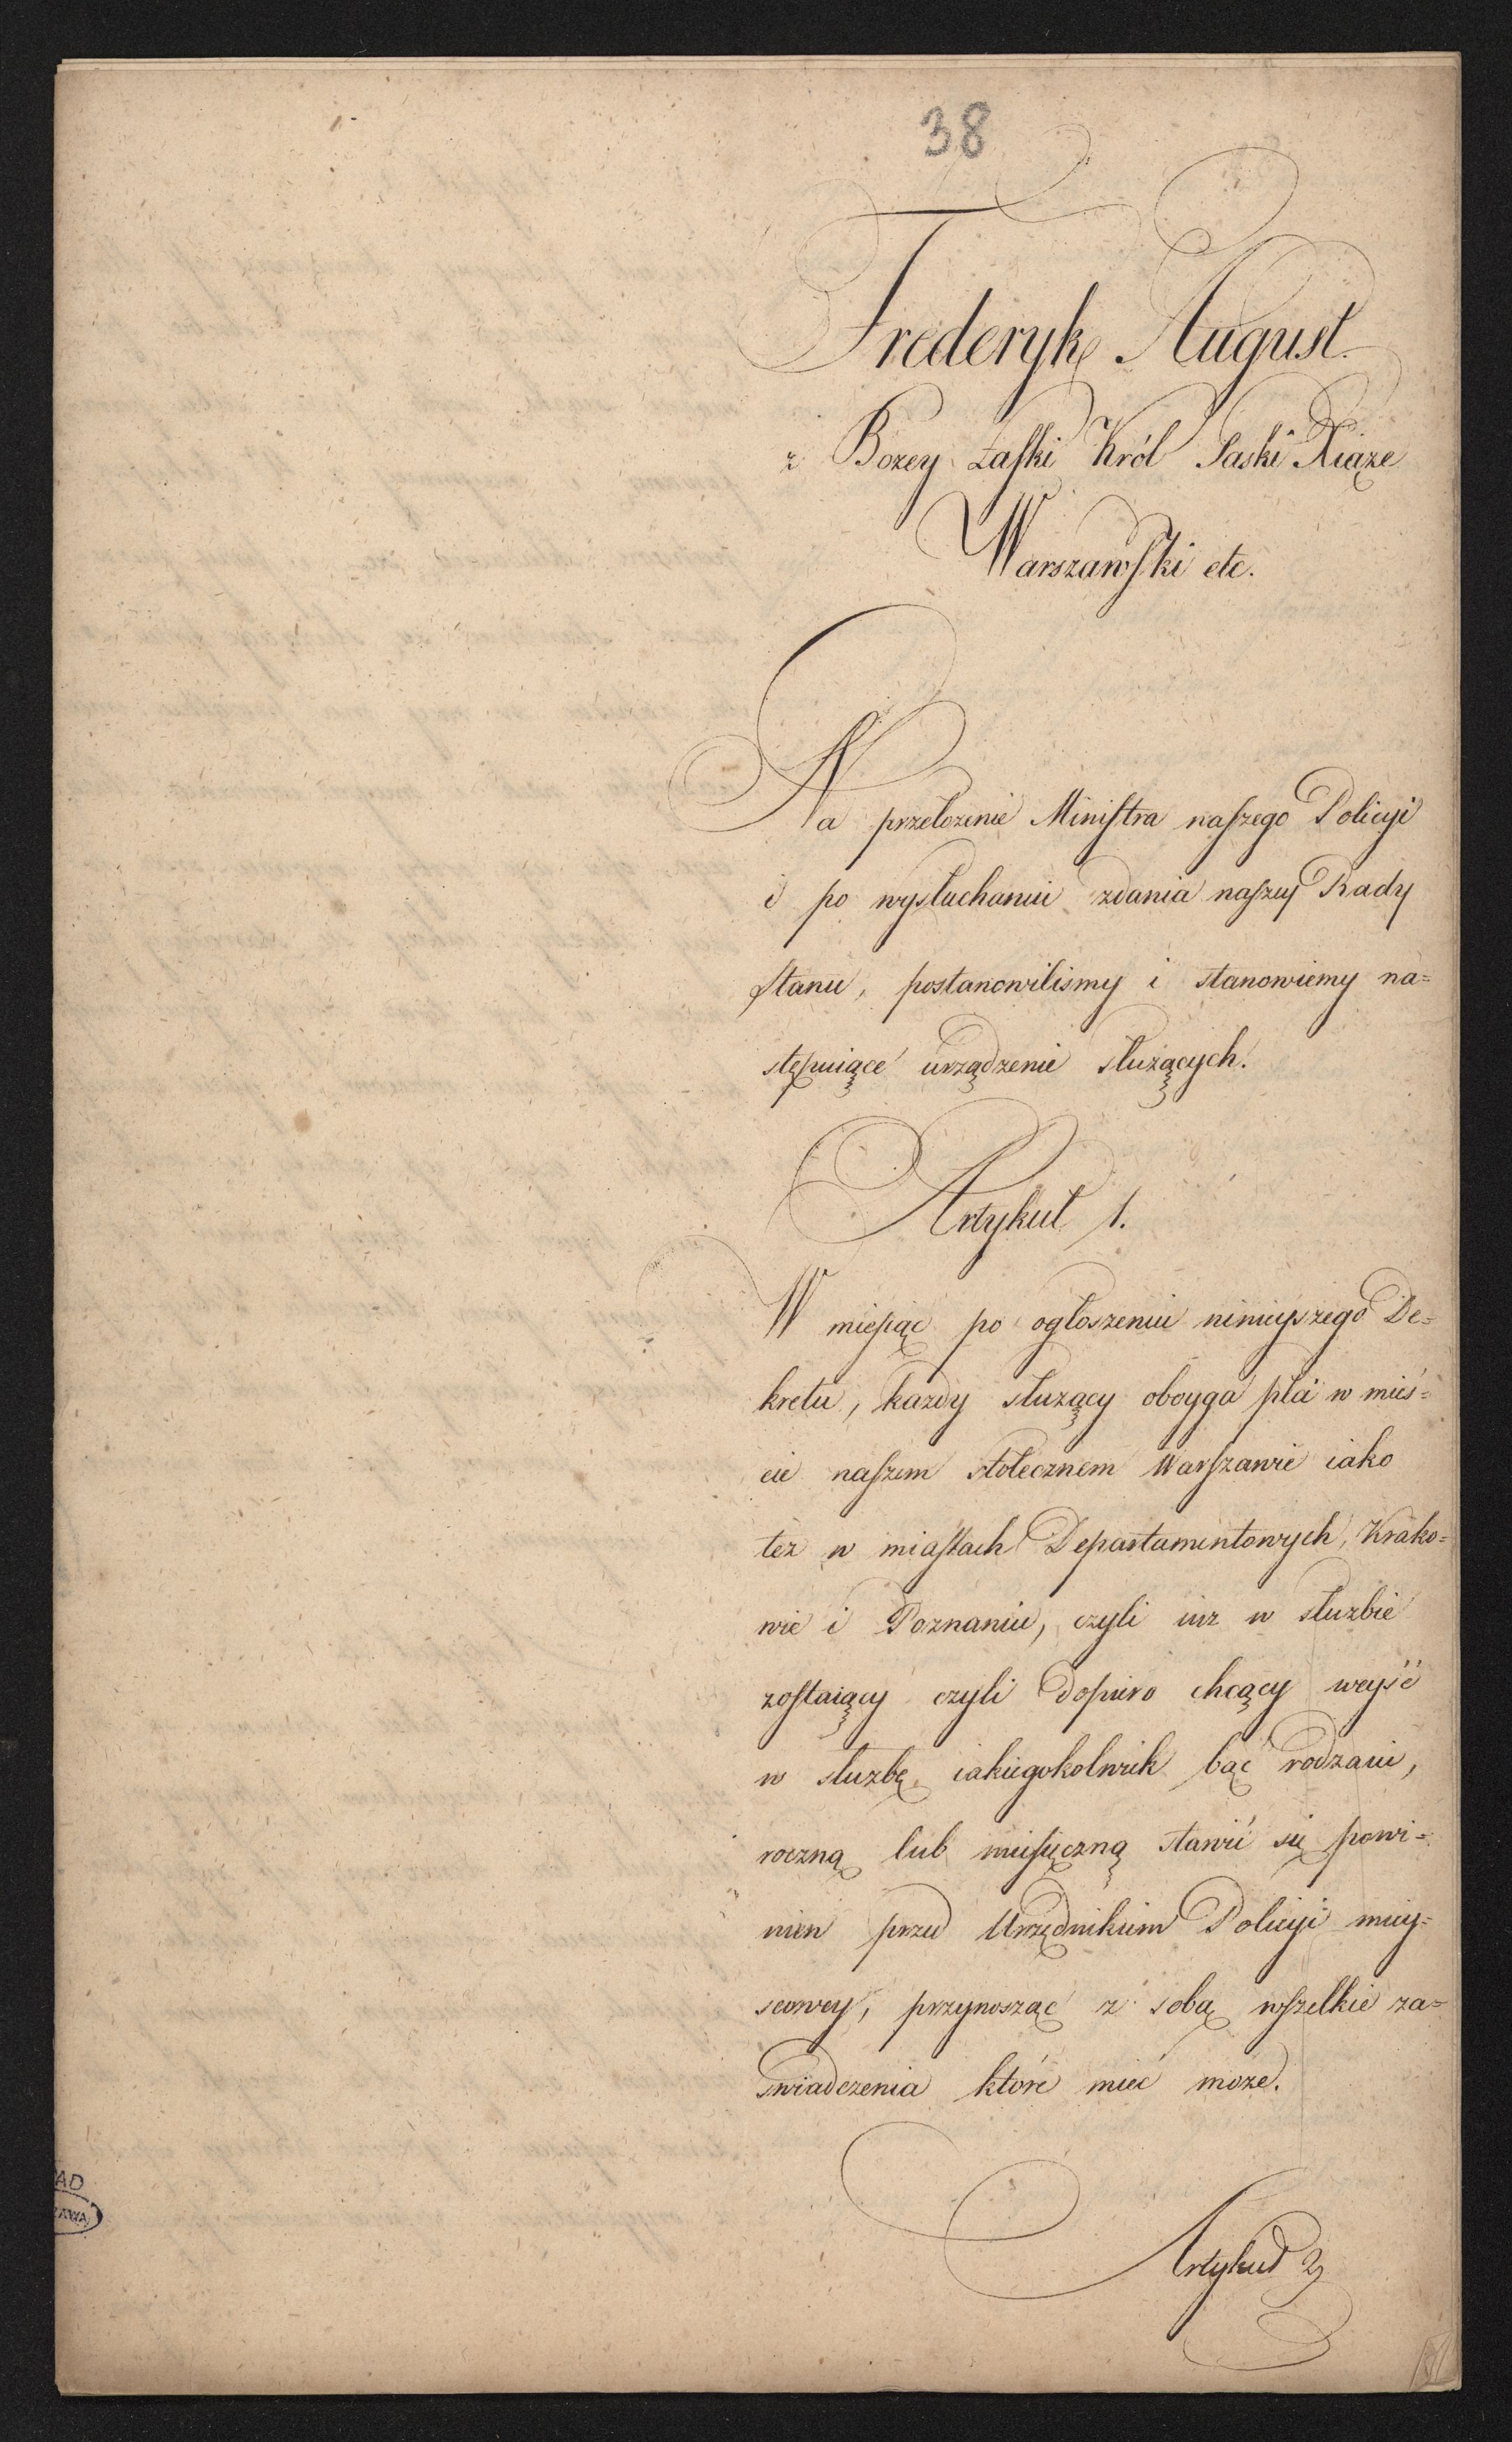 38
Frederyk August.
z Bozey Łaski Król Saski Xiąze
Warszawski etc.
Na przełozenie Ministra naszego Policyi
i po wysłuchaniu zdania naszey Rady
Stanu, postanowilismy i stanowiemy na=
stępuiące urządzenie służących.
Artykuł 1.
W miesiąc po ogłoszeniu ninieyszego De=
kretu, kazdy służący oboyga płci w mieś=
cie naszem stołecznem Warszawie iako
tez w miastach Departamentowych, Krako=
wie i Poznaniu, czyli iuz w słuzbie
zostaiący czyli dopiero chcący weyśc
w słuzbę iakiegokolwiek bąć rodzaiu,
roczną lub miesięczną stawić się powi=
nien przed Urzędnikiem Policyi miey=
scowey, przynosząc z sobą wszelkie za=
swiadczenia które mieć moze.
Artykuł 2
AD
ZAWA